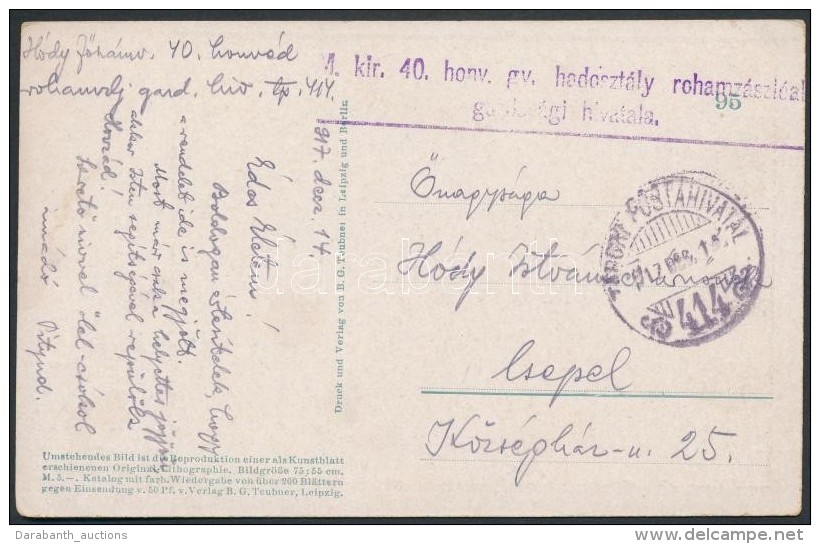 Hódy Főhadn. 40. honvéd
rohamzlj gard. hiv. tp. 414.
M. kir. 40. honv. gy. hadosztály rohamzászlóalj
gazdasági hivatala.
95
917. decz. 14.
Édes Életem!
Boldogan értesítelek, hogy
a rendelet ide is megjött.
Most már csak a helyettes jöjjön
akkor Isten segítségével repülök
Hozzád!
Szerető szívvel ölel-csókol
imádó
Druck und Verlag von B. G. Teubner in Leipzig und Berlin
Őnagysága
Hódy Istvánné
Csepel
Községház-u. 25.
TÁBORI POSTAHIVATAL
917. DEC. 14
414
Umstehendes Bild ist die Reproduktion einer als Kunstblatt
erschienenen Original-Lithographie. Bildgröße 75:55 cm.
M. 5.–. Katalog mit farb. Wiedergabe von über 200 Blättern
gegen Einsendung v. 50 Pf. v. Verlag B. G. Teubner, Leipzig.
darabanth
Darabanth_auctions
delcampe.net